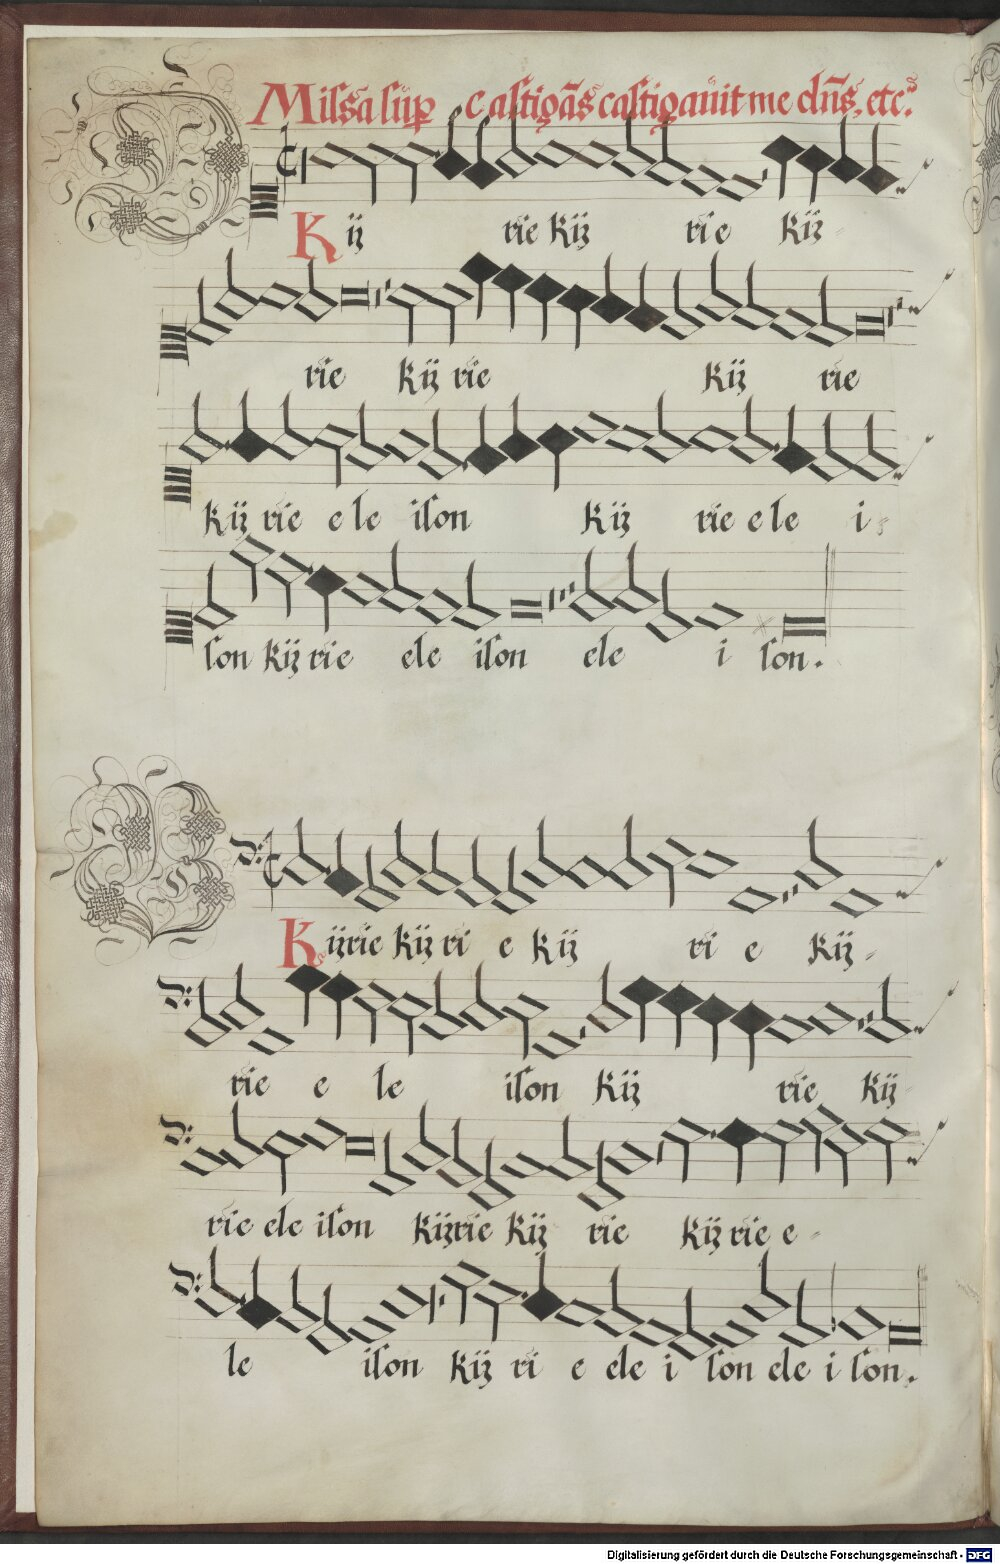 Miſsa ſup̱ Caſtigãs caſtigauit me dñs, etc.
Kÿ rie Kÿ rie Kÿ
rie kÿ rie Kÿ rie
Kÿ rie e le iſon Kÿ rie e le i
ſon Kÿ rie ele iſon ele i ſon.
Kÿrie Kÿ ri e Kÿ ri e Kÿ
rie e le iſon Kÿ rie Kÿ
rie ele iſon Kÿrie Kÿ rie Kÿ rie e
le iſon Kÿ ri e ele i ſon ele i ſon.
Digitalisierung gefördert durch die Deutsche Forschungsgemeinschaft - DFG